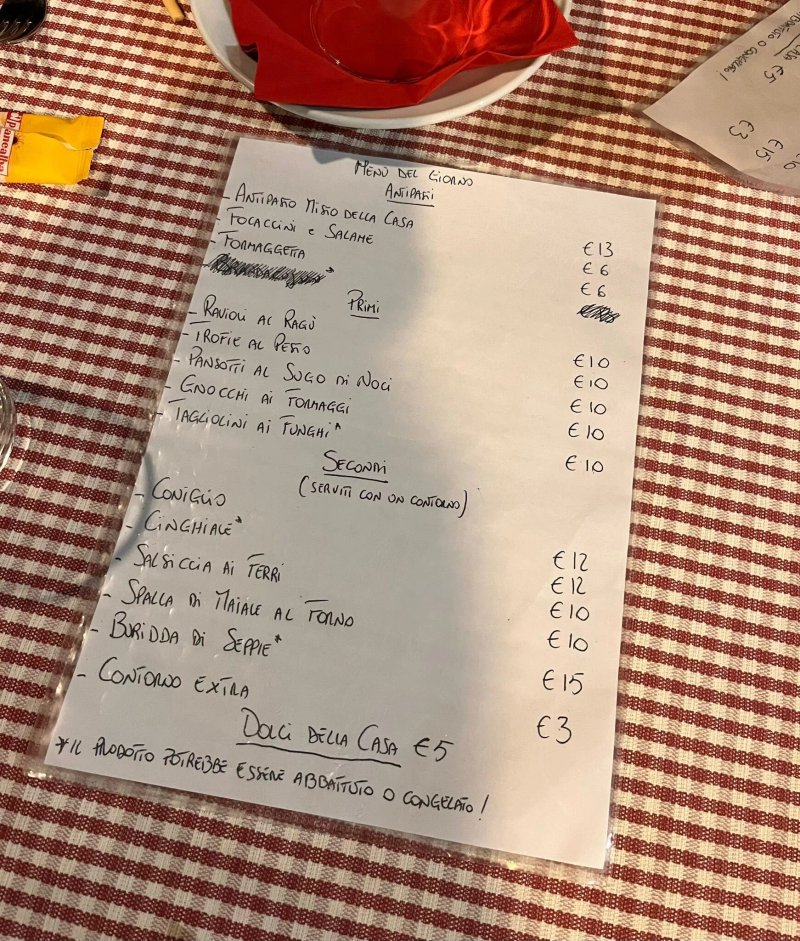 Menù del Giorno
Antipasti
- Antipasto Misto della Casa €13
- Focaccini e Salame €6
- Formaggetta €6
*
Primi
- Ravioli al Ragù €10
- Trofie al Pesto €10
- Pansotti al Sugo di Noci €10
- Gnocchi ai Formaggi €10
- Tagliolini ai Funghi* €10
Secondi
(serviti con un contorno)
- Coniglio €12
- Cinghiale* €12
- Salsiccia ai Ferri €10
- Spalla di Maiale al Forno €10
- Buridda di Seppie* €15
- Contorno extra €3
Dolci della Casa €5
*Il prodotto potrebbe essere abbattuto o congelato!
o congelato!
€5
€3
€15